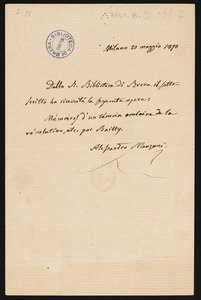 Milano 20 maggio 1870
Dalla R. Biblioteca di Brera il sotto-
scritto ha ricevuto la seguente opera:
Mémoires d'un témoin oculaire de la
révolution, etc. par Bailly.
Alessandro Manzoni